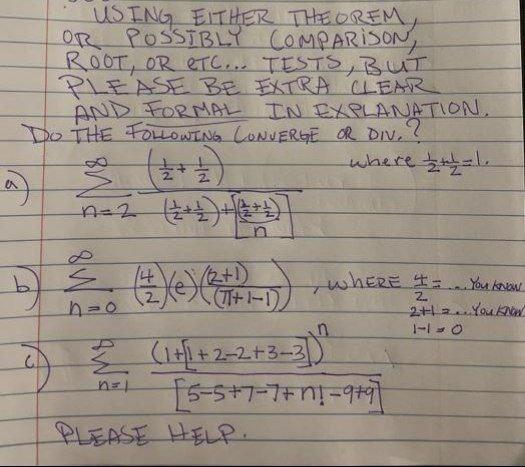 USING EITHER THEOREM,
OR POSSIBLY COMPARISON,
ROOT, OR etc... TESTS, BUT
PLEASE BE EXTRA CLEAR
AND FORMAL IN EXPLANATION.
DO THE FOLLOWING CONVERGE OR DIV.?
a) ∞ Σ n=2 (1/2 + 1/2) / ((1/2 + 1/2) + [(1/2 + 1/2)/n]) where 1/2 + 1/2 = 1.
b) ∞ Σ n=0 (4/2)(e)((2+1)/(π+1-1)), WHERE 4/2 = ... YOU KNOW
2+1 = ... YOU KNOW
1-1 = 0
c) ∞ Σ n=1 (1+[1+2-2+3-3])^n / [5-5+7-7+n!-9+9]
PLEASE HELP.